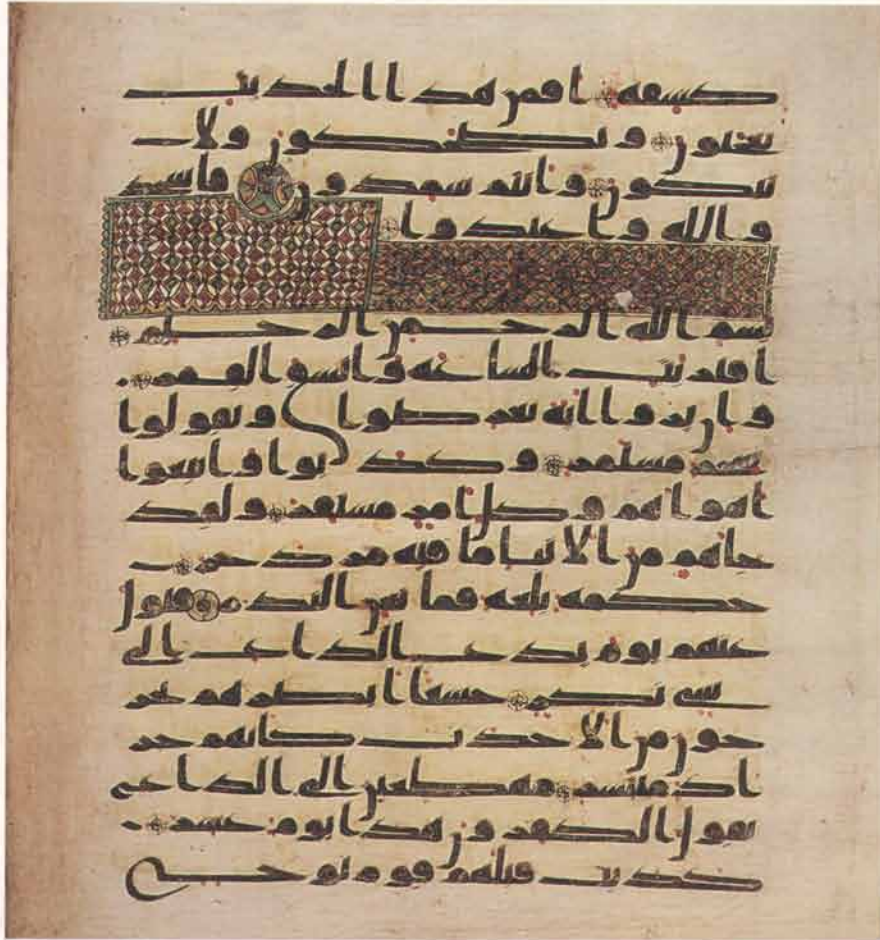 كشفه افمن هذا الحديث
تعجبون وتضحكون ولا
تبكون وانتم سمدون فاسجد
وا لله واعبدوا
بسم الله الرحمن الرحيم
اقتربت الساعه وانشق القمر
وان يروا ايه يعرضوا ويقولوا
سحر مستمر وكذبوا واتبعوا
اهواهم وكل امر مستقر ولقد
جاهم من الانبا ما فيه مزدجر
حكمه بلغه فما تغن النذر فتول
عنهم يوم يدع الداع الى
شي نكر خشعا ابصرهم يخر
جون من الاجداث كانهم جر
اد منتشر مهطعين الى الداع
يقول الكفرون هذا يوم عسر
كذبت قبلهم قوم نوح